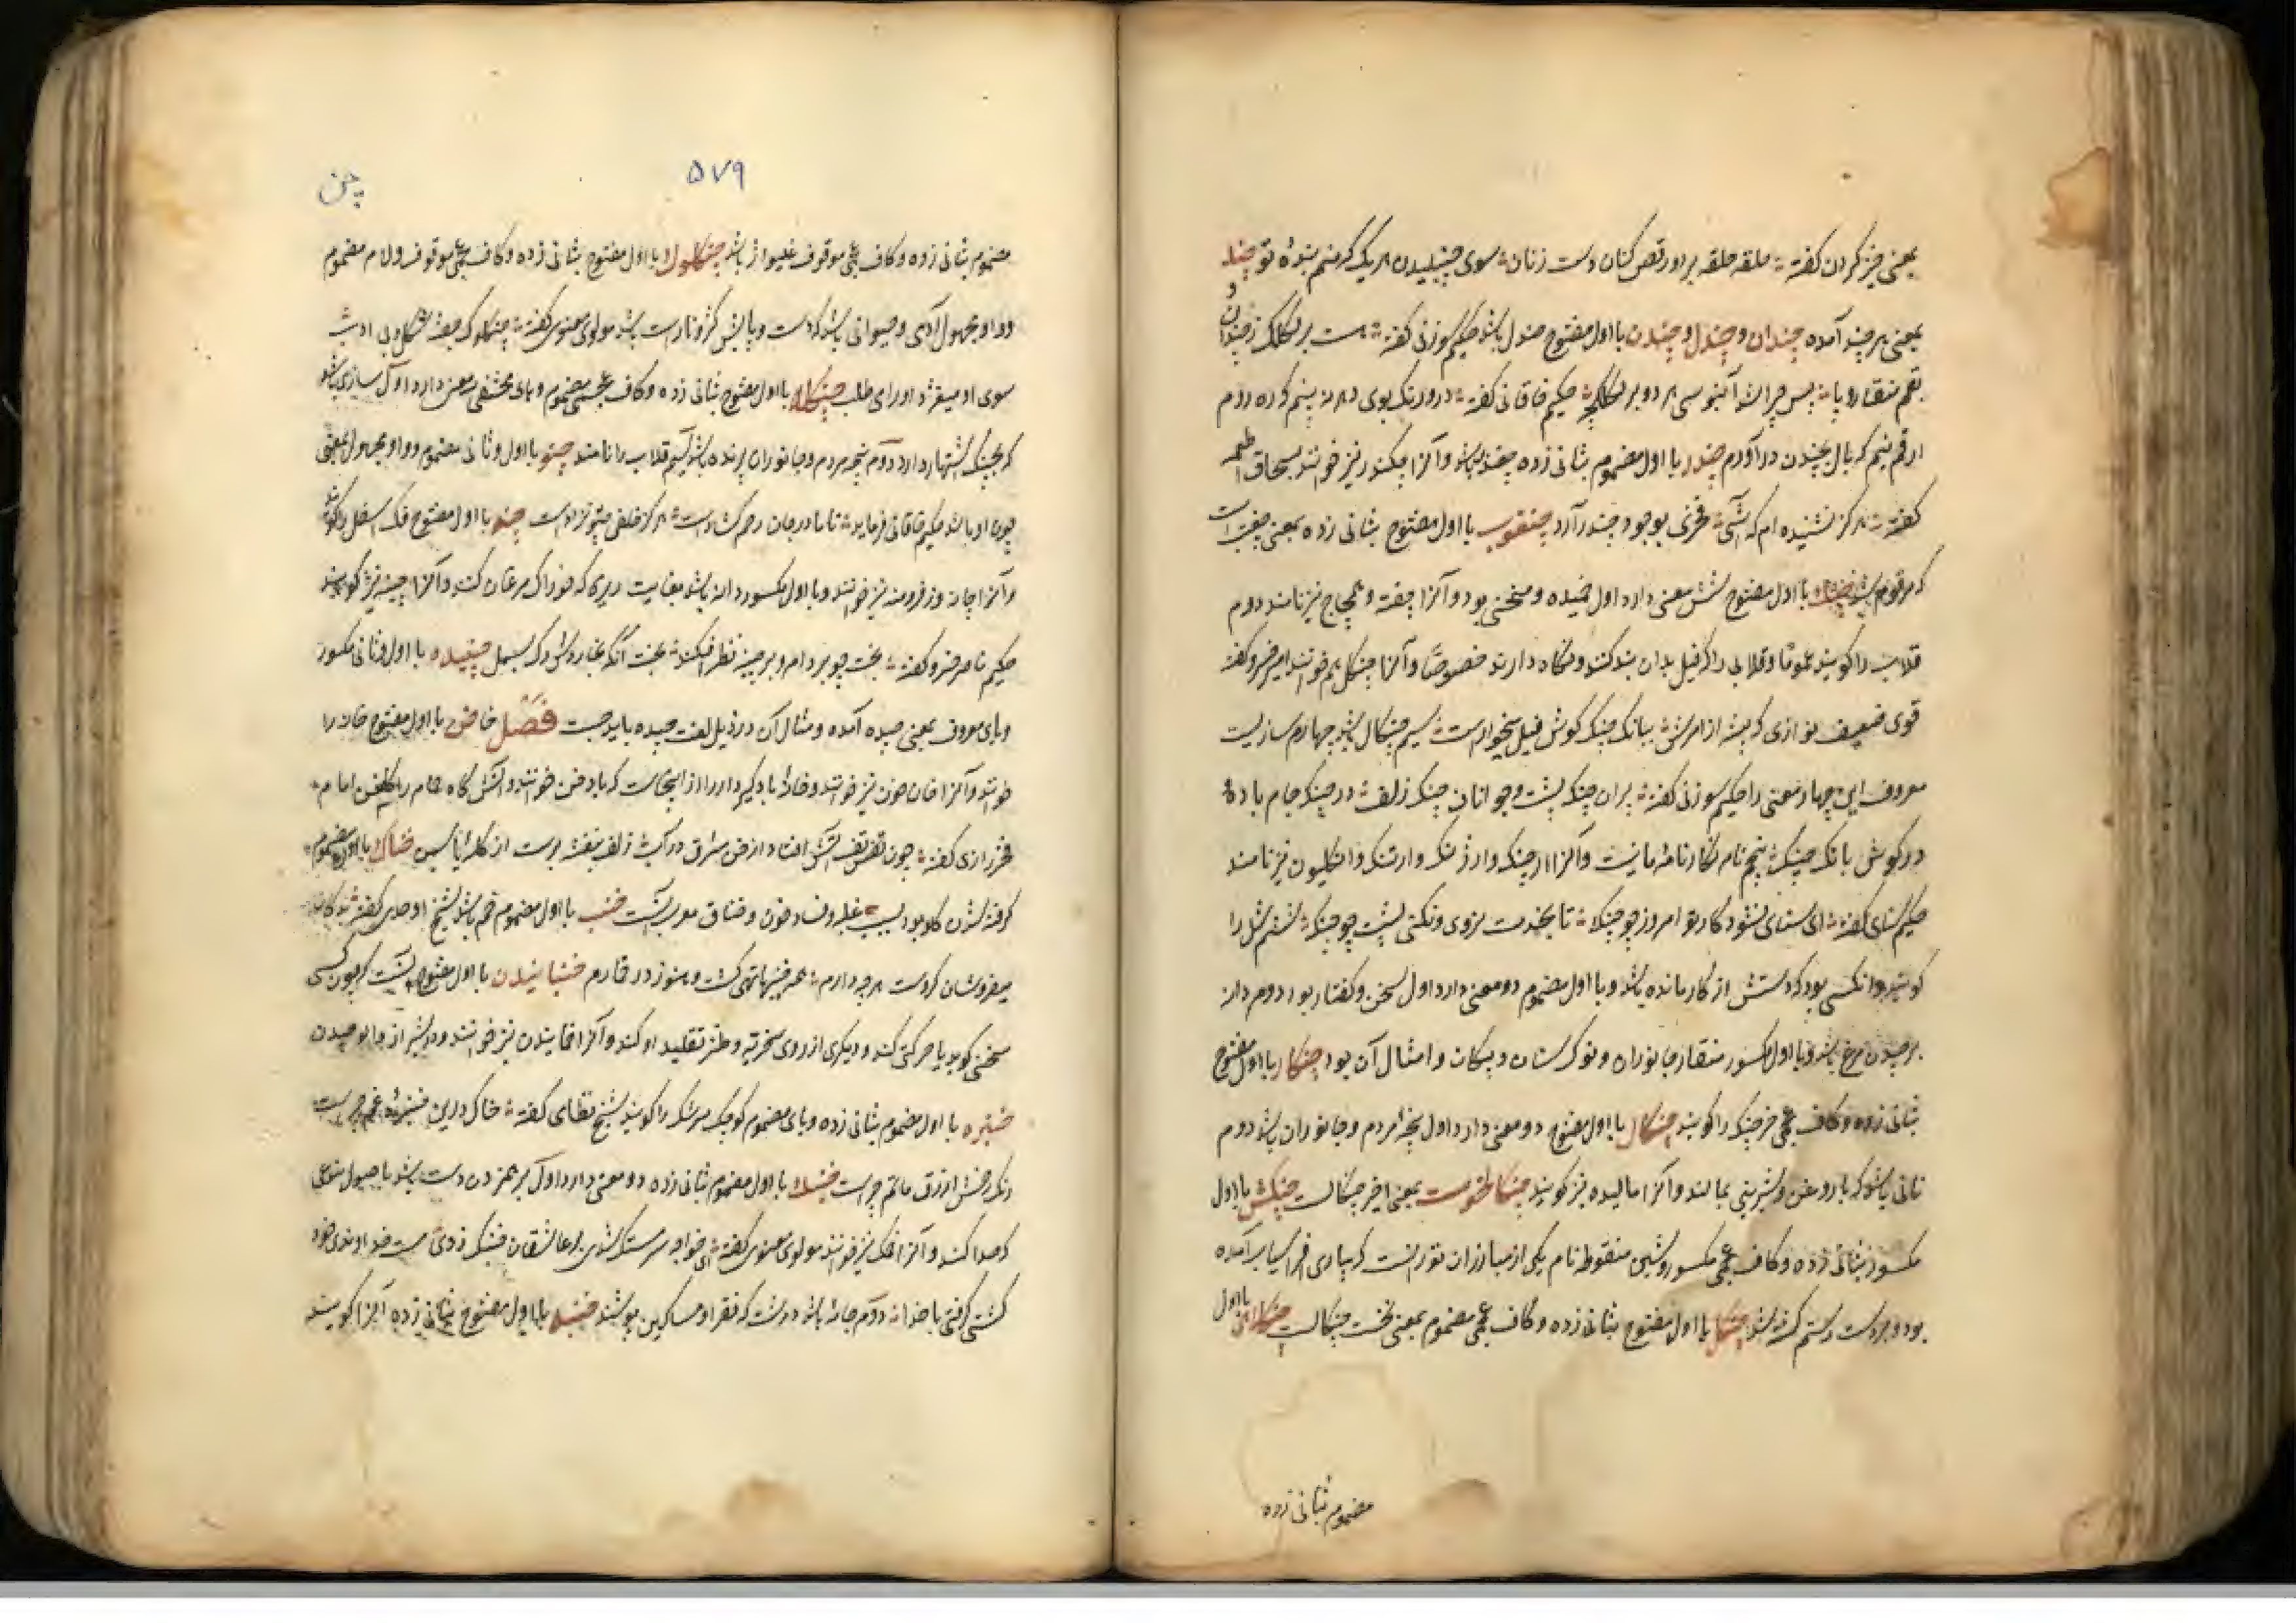 بمعنی خیز کردن گفته حلقه حلقه بر او رقص کنان دست زنان سوی چنبیدن هر یک که منم بندهٔ تو چند
و
بمعنی هر چند آمده چندان و چندل و چندن با اول مفتوح صندل باشد حکیم سوزنی گفته هست بر کلک ز چندن
بقم منقار و پا پس چرا شد آبنوسی هر دو پر حکیم خاقانی گفته درو رنگ بوی دهد
ارقم نیم که بال بچندن درآورم چندر با اول مضموم بثانی زده چغندر باشد و آنرا چکندر نیز خوانند بسحاق اطعمه
گفته هرگز نشنیده ام که آشی فخری بوجود چندر آرد با اول مفتوح بثانی زده بمعنی
که مرقوم شد چنگ با اول مفتوح شش معنی دارد اول خمیده و منحنی بود و آنرا چفته و نیز نامند دوم
قلاب را گویند عموما و قلابی را که فیل بدان بند کنند و نگاه دارند خصوصا و آنرا چنگل هم خوانند امیر خسرو گفته
قوی ضعیف نوازی که پشه از امرش ببانگ چنگ گوش فیل بخوارست سیم چنگال باشد چهارم سازیست
معروف این چهار معنی را حکیم سوزنی گفته پران چنگ پشت و جوانان چنگ زلف در چنگ جام باده
در گوش بانگ چنگ پنجم نام نگارنامهٔ مانیست و آنرا ارچنگ و ارژنگ و ارتنگ و انگلیون نیز نامند
حکیم سنای گفته ای سنای نشود کار تو امروز چو چنگ تا بخدمت نروی و نکنی پشت چو چنگ ششم شل را
گویند و آنکسی بود که دستش از کار مانده باشد و با اول مضموم دو معنی دارد اول سخن و گفتار بود دوم دانه
برچیدن مرغ باشد و با اول مکسور منقار جانوران و نوک سنان و پیکان و امثال آن بود چنگار با اول مفتوح
بثانی زده و کاف عجمی خرچنگ را گویند چنگال با اول مفتوح دو معنی دارد اول پنجه مردم و جانوران باشد دوم
نانی باشد که با روغن و شیرینی بمالند و آنرا مالیده نیز گویند چنگالخوست بمعنی اخیر چنگالست چنگش با اول
مکسور بثانی زده و کاف عجمی مکسور و شین منقوطه نام یکی از مبارزان تورانست که بیاری افراسیاب آمده
بود و بر دست رستم کشته شد چنگل با اول مفتوح بثانی زده و کاف عجمی مضموم بمعنی نخست چنگالست با اول
مضموم بثانی زده
چن
۵۷۹
مضموم بثانی زده و کاف عجمی موقوف غلیواژ باشد چنگلوک با اول مفتوح بثانی زده و کاف عجمی موقوف و لام مضموم
و واو مجهول آدمی و حیوانی باشد که دست و پایش کژ و ناراست باشد مولوی معنوی گفته چنگلوک و خفته شکل و بی ادب
سوی او میغژ و او را می طلب چنگله با اول مفتوح بثانی زده و کاف عجمی مضموم و های مختفی دو معنی دارد اول سازی باشد
که بچنگ اشتهار دارد دوم پنجه مردم و جانوران پرنده باشد سیم قلاب را نامند چنو با اول و ثانی مضموم و واو مجهول بمعنی
چون او باشد حکیم خاقانی فرماید تا مادر جان رحم گشادست هرگز خلفی چنو نزادست چنه با اول مفتوح فک اسفل را گویند
و آنرا چانه و زفرونه نیز خوانند و با اول مکسور دانه باشد بغایت ریزه که خوراک مرغان کنند و آنرا چینه نیز گویند
حکیم ناصر خسرو گفته بخت چو بر دام و بر چینه نظر افکند بخت آنگه غبار دلش که سیمل چنیده با اول و ثانی مکسور
و یای معروف بمعنی چیده آمده و مثال آن در ذیل لغت چیده باید جست فصل خا خن با اول مفتوح خانه را
خوانند و آنرا خان و خون نیز خوانند و خانهٔ بادگیر دار را از اینجاست که بادخن خوانند و آتش گاه حمام را گلخن امام
فخر رازی گفته چون نفس آتش افتاد از خن شرق در ز زلف بنفشه رست از کله یاسمین خناک با اول مضموم
گرفته شدن گلو بود بسبب غلبه و فساد خون و خناق معرب آنست خنب با اول مضموم خم باشد شیخ اوحدی گفته
میفروشان کردست هر چه دارم عمر خنبها تهی گشت و هنوز در خمارم خنبانیدن با اول مفتوح آنست که چون کسی
سخنی گوید یا حرکتی کند و دیگری از روی سخریه و طنز تقلید او کند و آنرا خمانیدن نیز خوانند
خنبره با اول مضموم بثانی زده و بای مضموم کوچک سرتنگ را گویند شیخ نظامی گفته خاک درین خنبرهٔ غم چراست
رنگ خمش ازرق ماتم چراست خنبک با اول مضموم بثانی زده دو معنی دارد اول بر هم زدن دست باشد با اصول
که صدا کند و آنرا خمک نیز خوانند مولوی معنوی گفته ای خواجه سرمستک شدی بر عاشقان خنبک زدی مست خداوندی خود
کشتی گرفتی با خدا دوم جامهٔ باشد درشت که فقرا و مساکین پوشند خنبه با اول مفتوح بثانی زده آنرا گویند